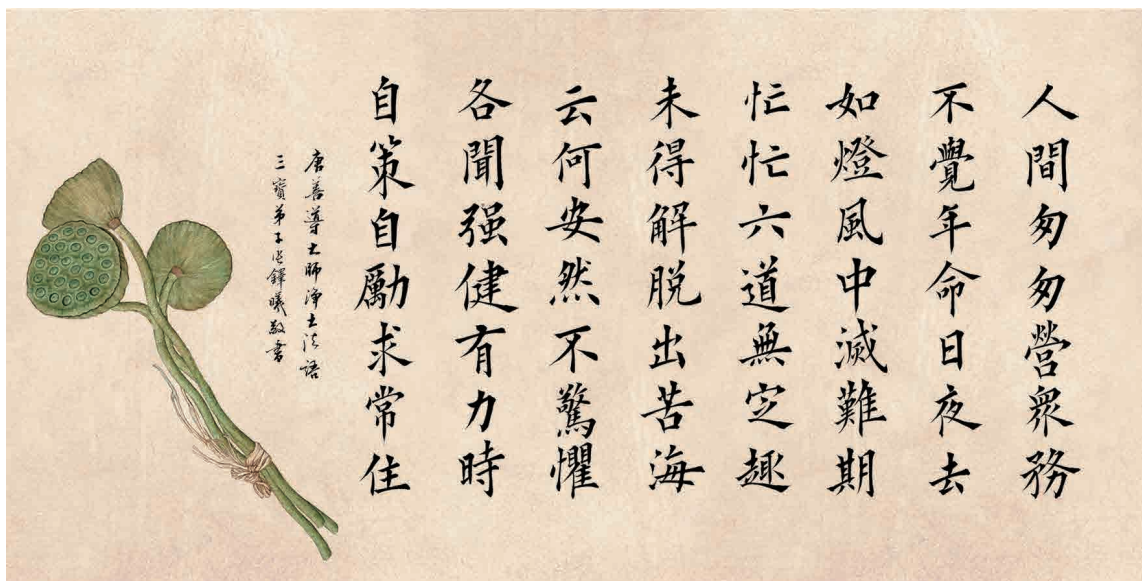 人間匆匆營眾務
不覺年命日夜去
如燈風中滅難期
忙忙六道無定趣
未得解脫出苦海
云何安然不驚懼
各聞强健有力時
自策自勵求常住
唐善導大師淨土法語
三寶弟子鐸曦敬書